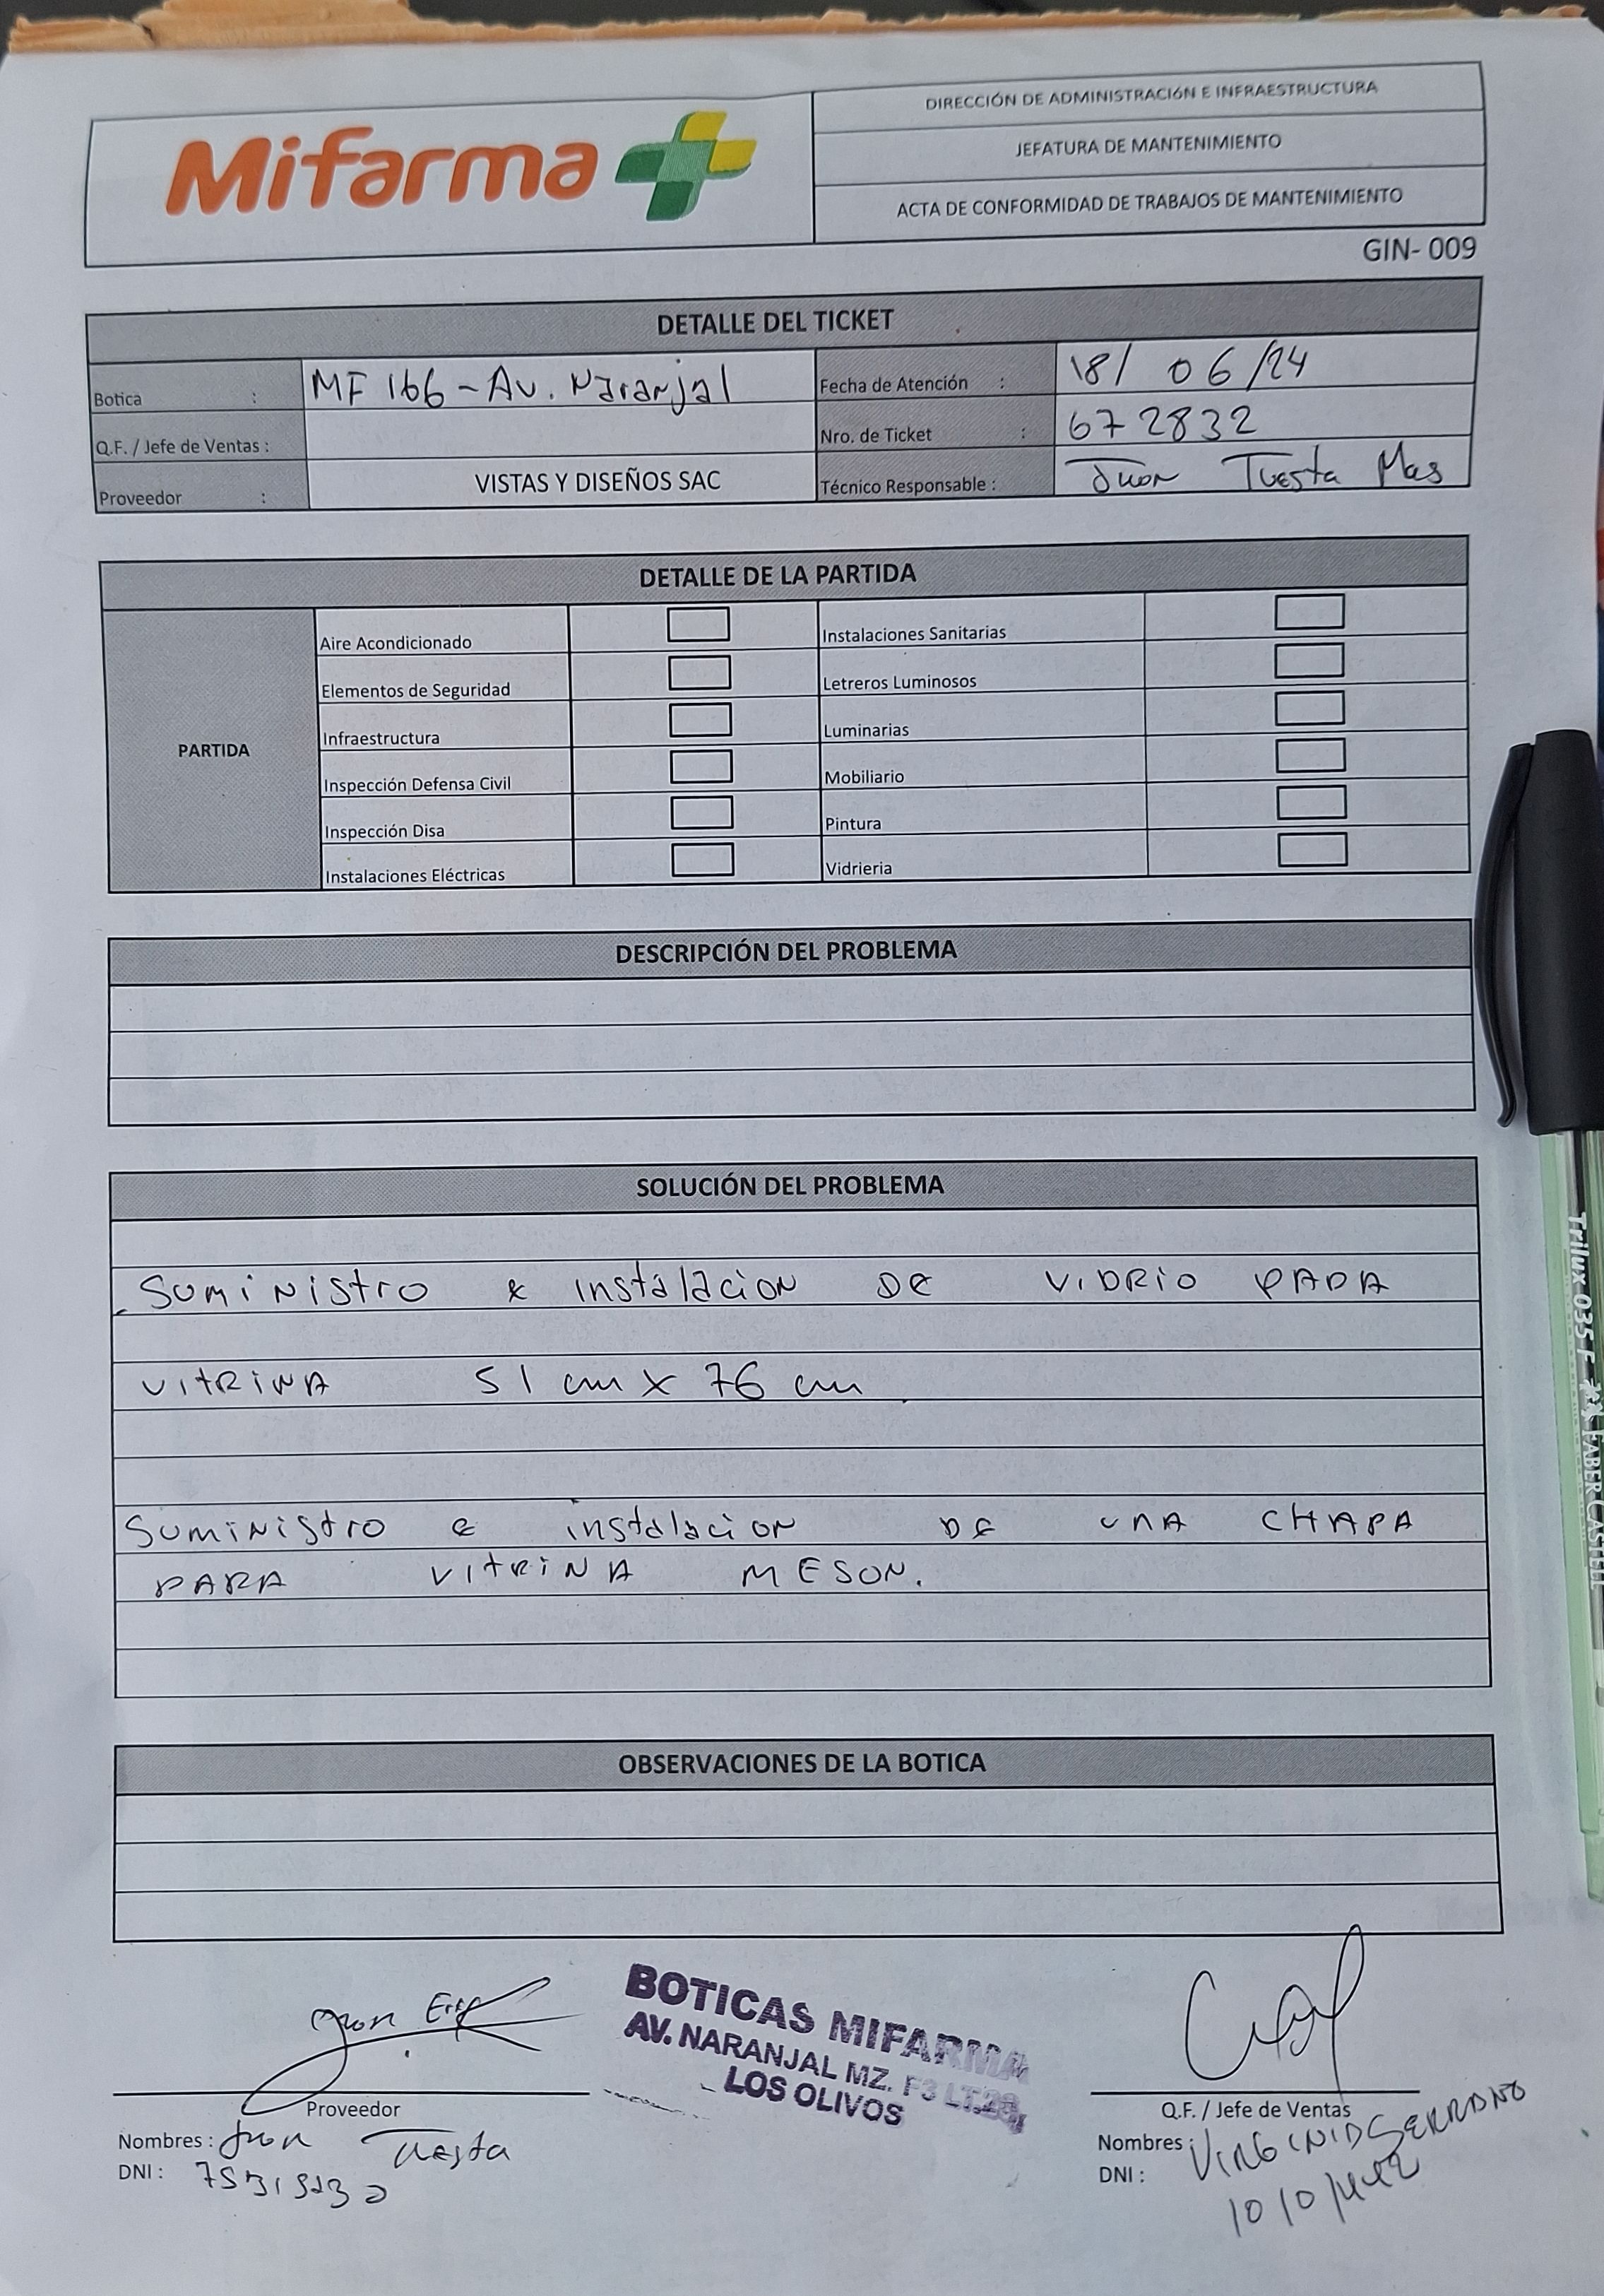 Mifarma
DIRECCIÓN DE ADMINISTRACIÓN E INFRAESTRUCTURA
JEFATURA DE MANTENIMIENTO
ACTA DE CONFORMIDAD DE TRABAJOS DE MANTENIMIENTO
GIN- 009
DETALLE DEL TICKET
Botica : MF 166 - Av. Naranjal Fecha de Atención : 18/ 06/24
Q.F. / Jefe de Ventas : Nro. de Ticket : 672832
Proveedor : VISTAS Y DISEÑOS SAC Técnico Responsable : Juon Tuesta Mas
DETALLE DE LA PARTIDA
PARTIDA
Aire Acondicionado Instalaciones Sanitarias
Elementos de Seguridad Letreros Luminosos
Infraestructura Luminarias
Inspección Defensa Civil Mobiliario
Inspección Disa Pintura
Instalaciones Eléctricas Vidrieria
DESCRIPCIÓN DEL PROBLEMA
SOLUCIÓN DEL PROBLEMA
SUMINISTRO e instalacion DE VIDRIO PARA
VITRINA 51 cm x 76 cm
SUMINISTRO e instalacion DE UNA CHAPA
PARA VITRINA MESON.
OBSERVACIONES DE LA BOTICA
BOTICAS MIFARMA
AV. NARANJAL MZ. F3 LT.28,
LOS OLIVOS
Proveedor
Nombres : Juon Tuesta
DNI :
Q.F. / Jefe de Ventas
Nombres : VIRGINIA SERRANO
DNI :
Trilux 035 F FABER CASTELL